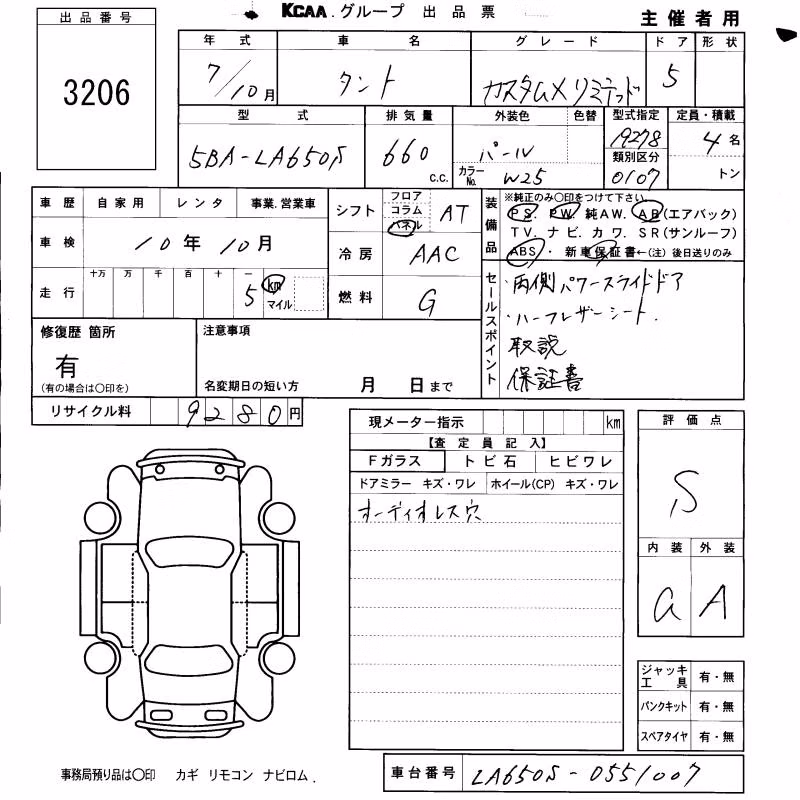 KCAA.グループ 出品票
主催者用
出品番号
3206
年式 車名 グレード ドア 形状
7/10月 タント カスタムX リミテッド 5
型式 排気量 外装色 色替 型式指定 定員・積載
5BA-LA650S 660 c.c. パール 19278 4名
カラーNo. W25 類別区分 0107 トン
車歴 自家用 レンタ 事業.営業車
車検 10年10月
走行 十万 万 千 百 十 一 5 km マイル
シフト フロア コラム パネル AT
冷房 AAC
燃料 G
装備品 ※純正のみ○印をつけて下さい。
PS. PW. 純AW. AB(エアバック)
TV. ナビ. カワ. SR(サンルーフ)
ABS・ 新車保証書←(注)後日送りのみ
セールスポイント
・両側パワースライドドア
・ハーフレザーシート.
取説
保証書
修復歴 箇所
有
(有の場合は○印を)
注意事項
名変期日の短い方 月 日まで
リサイクル料 9280円
現メーター指示 km
【査定員記入】
Fガラス トビ石 ヒビワレ
ドアミラー キズ・ワレ ホイール(CP) キズ・ワレ
オーディオレス穴
評価点
S
内装 外装
a A
ジャッキ工具 有・無
パンクキット 有・無
スペアタイヤ 有・無
事務局預り品は○印 カギ リモコン ナビロム.
車台番号 LA650S-0551007